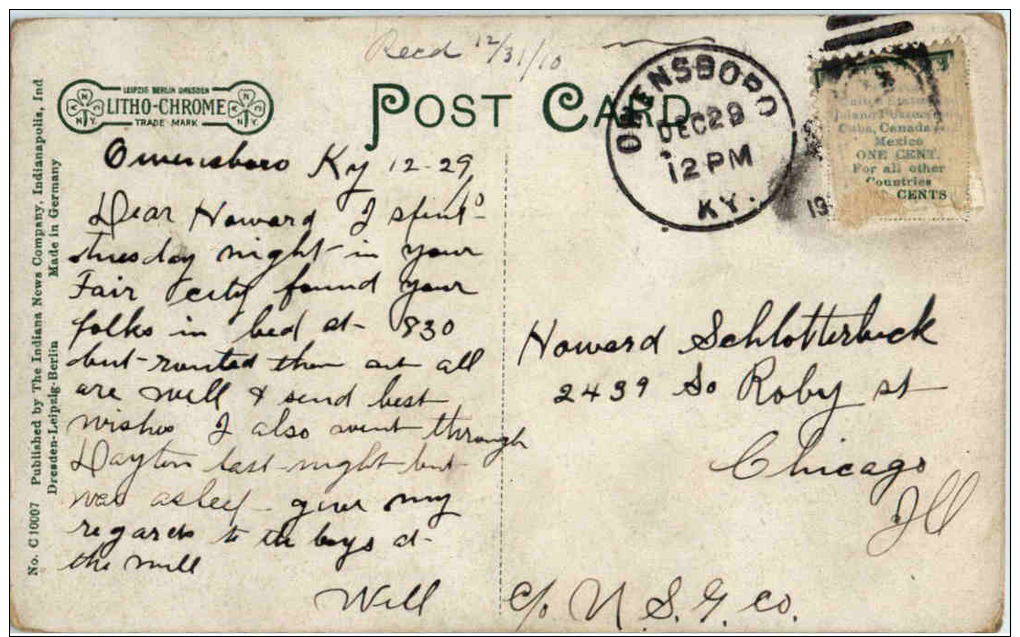 Recd 12/31/10
LEIPZIG BERLIN DRESDEN
LITHO-CHROME
TRADE MARK
POST CARD
OWENSBORO
DEC 29
12 PM
KY.
19
Cuba, Canada
Mexico
ONE CENT.
For all other
Countries
CENTS
No. C10007 Published by The Indiana News Company, Indianapolis, Ind
Dresden-Leipzig-Berlin Made in Germany
Owensboro Ky 12-29/10
Dear Howard I spent
tuesday night in your
Fair city found your
folks in bed at 830
but routed them out all
are well & send best
wishes I also went through
Dayton last night but
was asleep give my
regards to the boys at
the mill
Will
Howard Schlotterbeck
2439 So Roby st
Chicago
Ill
c/o U.S.G. Co.